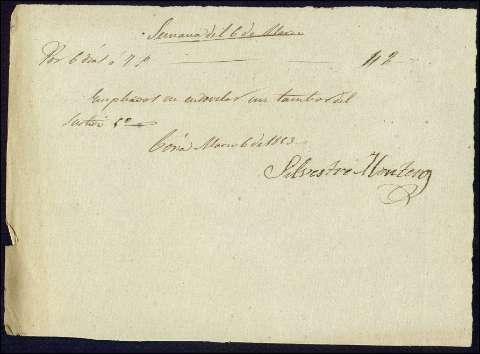 Semana del 6 de Marzo
Por 6 dias a 7 p 42
Empleados en endovelar un tambor del
Cór.a Marzo 6 de 1813
Silvestre Montero